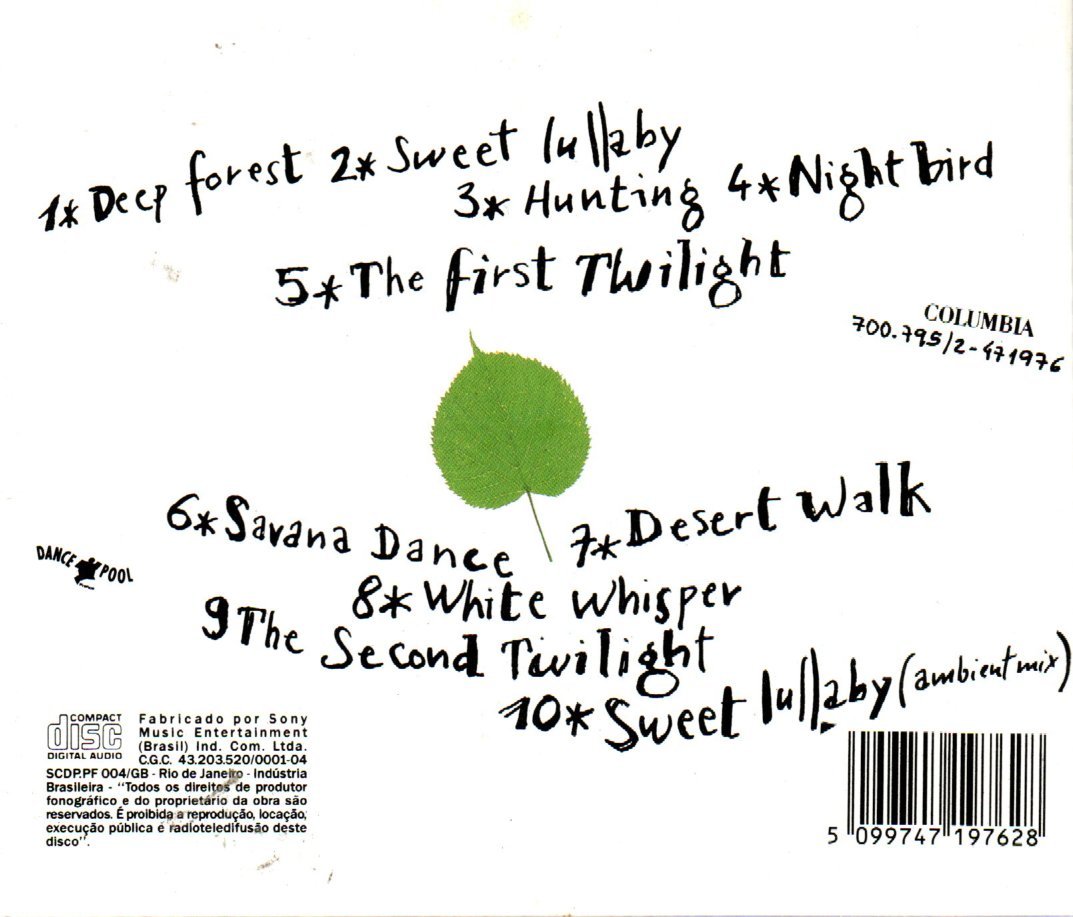 1* Deep forest 2* Sweet lullaby
3* Hunting 4* Night bird
5* The first Twilight
COLUMBIA
700.795/2-471976
6* Savana Dance 7* Desert Walk
DANCE POOL
8* White Whisper
9 The Second Twilight
10* Sweet lullaby (ambient mix)
COMPACT
disc
DIGITAL AUDIO
Fabricado por Sony
Music Entertainment
(Brasil) Ind. Com. Ltda.
C.G.C. 43.203.520/0001-04
SCDP.PF 004/GB - Rio de Janeiro - Indústria
Brasileira - "Todos os direitos de produtor
fonográfico e do proprietário da obra são
reservados. É proibida a reprodução, locação,
execução pública e radioteledifusão deste
disco".
5 099747 197628